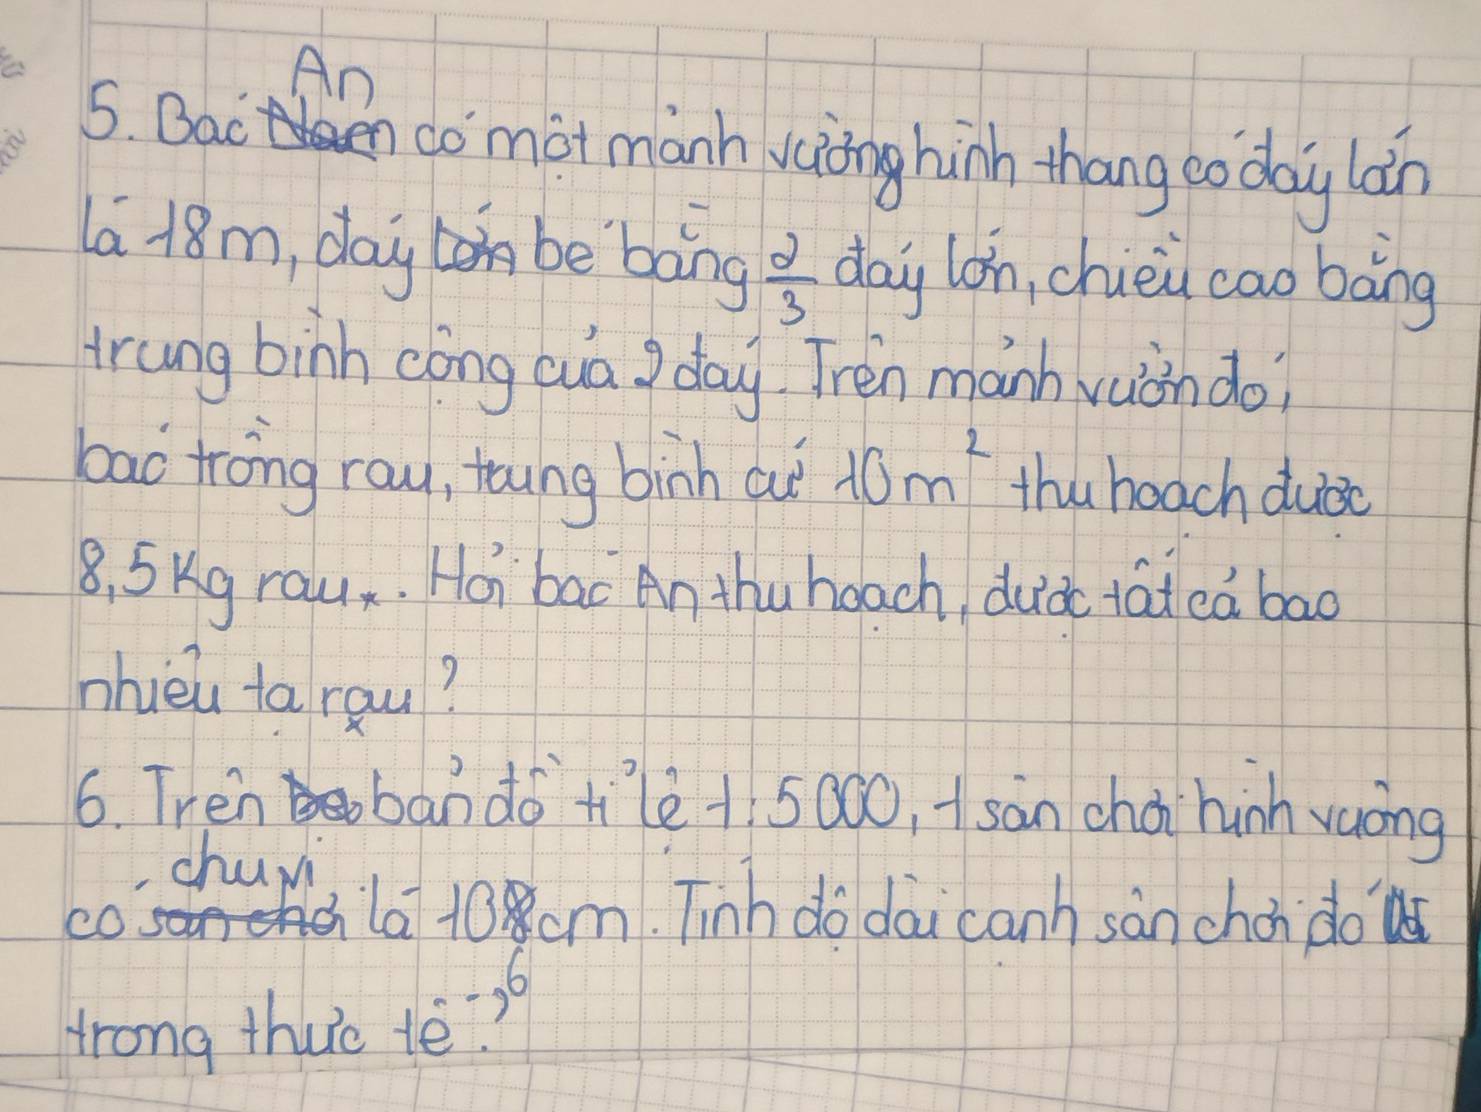 5. Bác An có một mảnh vường hình thang có đáy lớn
là 18m, đáy bé bằng 2/3 đáy lớn, chiều cao bằng
trung bình cộng của 2 đáy. Trên mảnh vườn đó,
bác trồng rau, trung bình cứ 10m² thu hoạch được
8,5 kg rau. Hỏi bác An thu hoạch, được tất cả bao
nhiêu tạ rau?
6. Trên bản đồ tỉ lệ 1:5000, 1 sân chơi hình vuông
có chu vi là 108cm. Tính độ dài cạnh sân chơi đó
trong thực tế?